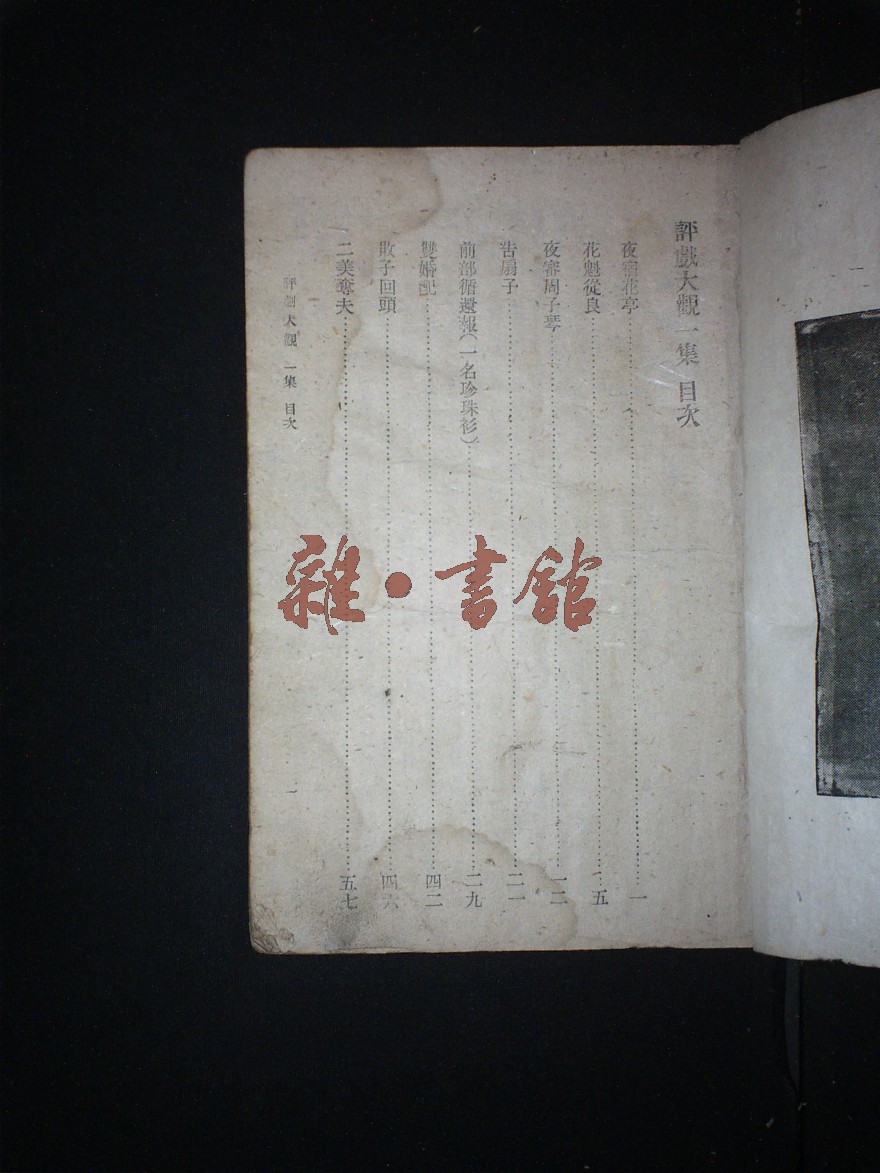 評戲大觀一集 目次
夜宿花亭 一
花魁從良 五
夜審周子琴 一二
告扇子 二一
前部循還報(一名珍珠衫) 二九
雙婚配 四二
敗子回頭 四六
二美奪夫 五七
評戲大觀 一集 目次
一
雜·書館